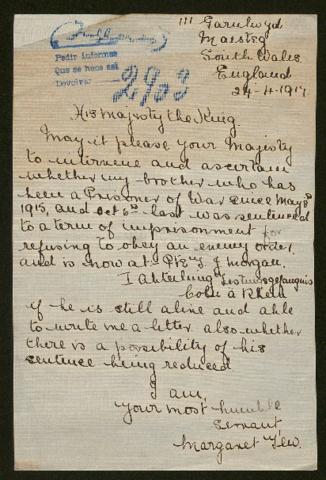 111 Garnlwyd
Maesteg
South Wales
England
24-4-1917
Inglaterra
Pedir informes
Que se hace así
Devolver
2903
His Majesty the King.
May it please your Majesty
to intervene and ascertain
whether my brother who has
been a Prisoner of War since May 8th
1915, and Oct 6th last was sentenced
to a term of imprisonment for
refusing to obey an enemy order,
and is now at Pte J. J. Morgan.
I Abteilung Festungsgefängnis
Coln a Rhein
if he is still alive and able
to write me a letter. also whether
there is a possibility of his
sentence being reduced
I am,
your most humble
servant
Margaret Lew.